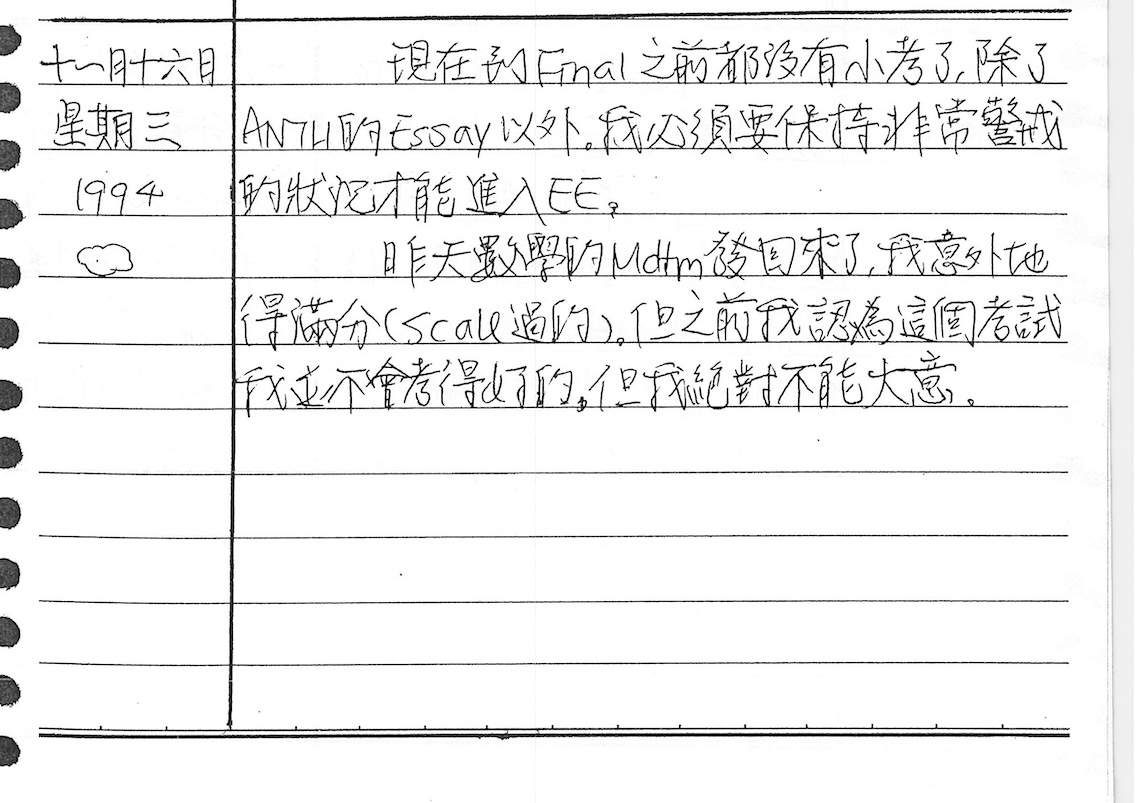 十一月十六日
星期三
1994
現在到Final之前都沒有小考了,除了
ANTH的Essay以外。我必須要保持非常警戒
的狀況才能進入EE。
昨天數學的Mdtm發回來了,我意外地
得滿分(scale過的)。但之前我認為這個考試
我並不會考得好的。但我絕對不能大意。